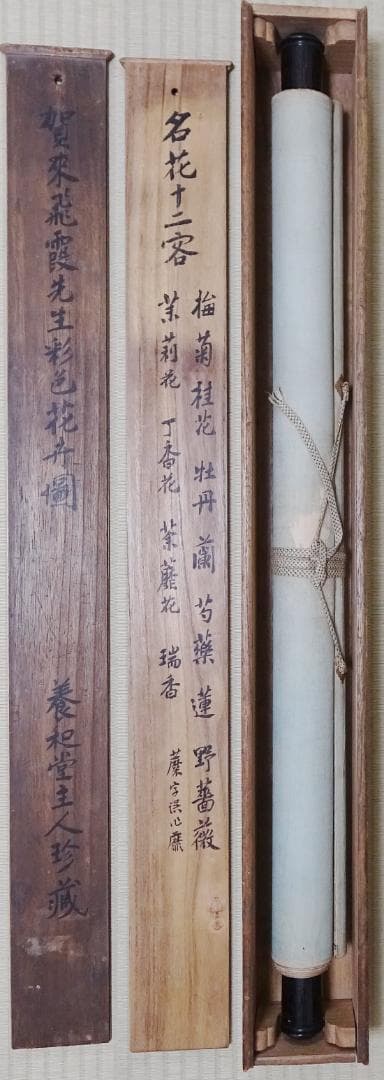 賀來飛霞先生彩色花卉圖
養和堂主人珍藏
名花十二客
梅 菊 桂花 牡丹 蘭 芍藥 蓮 野薔薇
茉莉花 丁香花 荼蘼花 瑞香